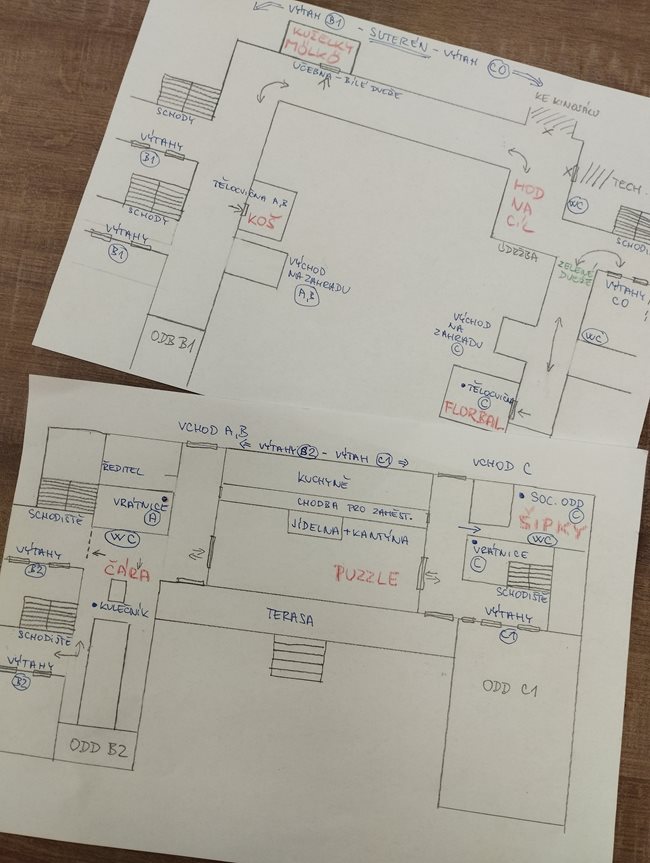 ← VÝTAH B1 - SUTERÉN - VÝTAH C0 →
KUŽELKY
MÖLKÖ
UČEBNA - BÍLÉ DVEŘE
KE KINOSÁLU
SCHODY
VÝTAHY
B1
TECH.
HOD
NA
CÍL
WC
TĚLOCVIČNA A,B
KOŠ
SCHODY
SCHODI
VÝTAHY
B1
ÚDRŽBA
ZELENÉ
DVEŘE
VÝCHOD
NA ZAHRADU
A,B
VÝTAHY
C0
VÝCHOD
NA
ZAHRADU
C
WC
ODB B1
TĚLOCVIČNA
C
FLORBAL
VCHOD A,B
← VÝTAHY B2 - VÝTAH C1 →
VCHOD C
ŘEDITEL
KUCHYNĚ
VRÁTNICE
A
CHODBA PRO ZAMĚST.
SOC. ODD
C
ŠIPKY
SCHODIŠTĚ
JÍDELNA + KANTÝNA
WC
WC
VÝTAHY
B2
ČÁRA
PUZZLE
VRÁTNICE
C
SCHODIŠTĚ
KULEČNÍK
TERASA
VÝTAHY
C1
SCHODIŠTĚ
VÝTAHY
B2
ODD C1
ODD B2